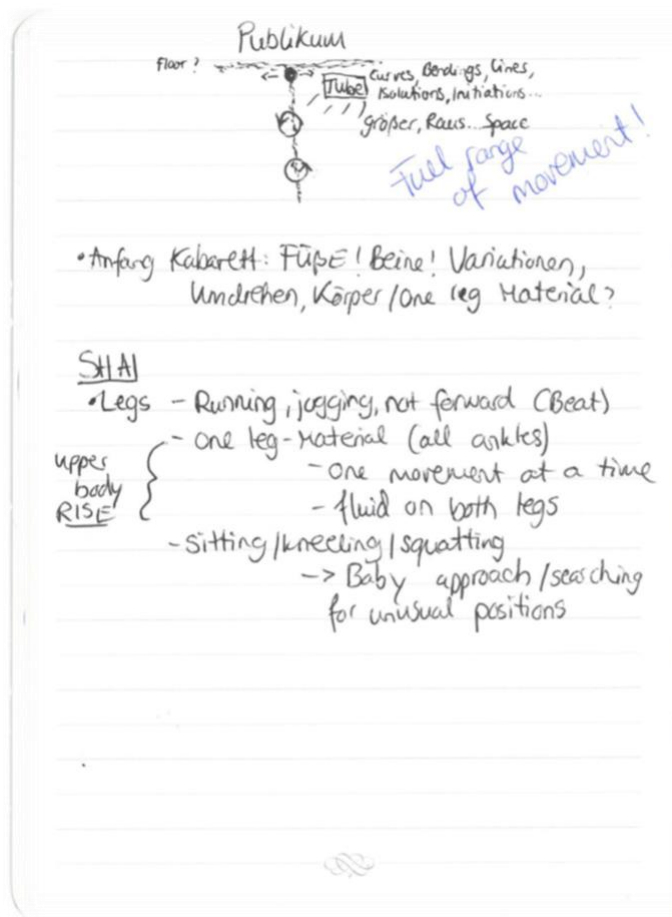 Publikum
floor?
Tube Curves, Bendings, Lines,
Isolations, Initiations...
größer, Raus... Space
Full range
of movement!
• Anfang Kabarett: FÜßE! Beine! Variationen,
Umdrehen, Körper/One leg Material?
SHAI
• Legs - Running, jogging, not forward (Beat)
- One leg-Material (all ankles)
upper
body
RISE
- one movement at a time
- fluid on both legs
- Sitting/kneeling/squatting
-> Baby approach/searching
for unusual positions